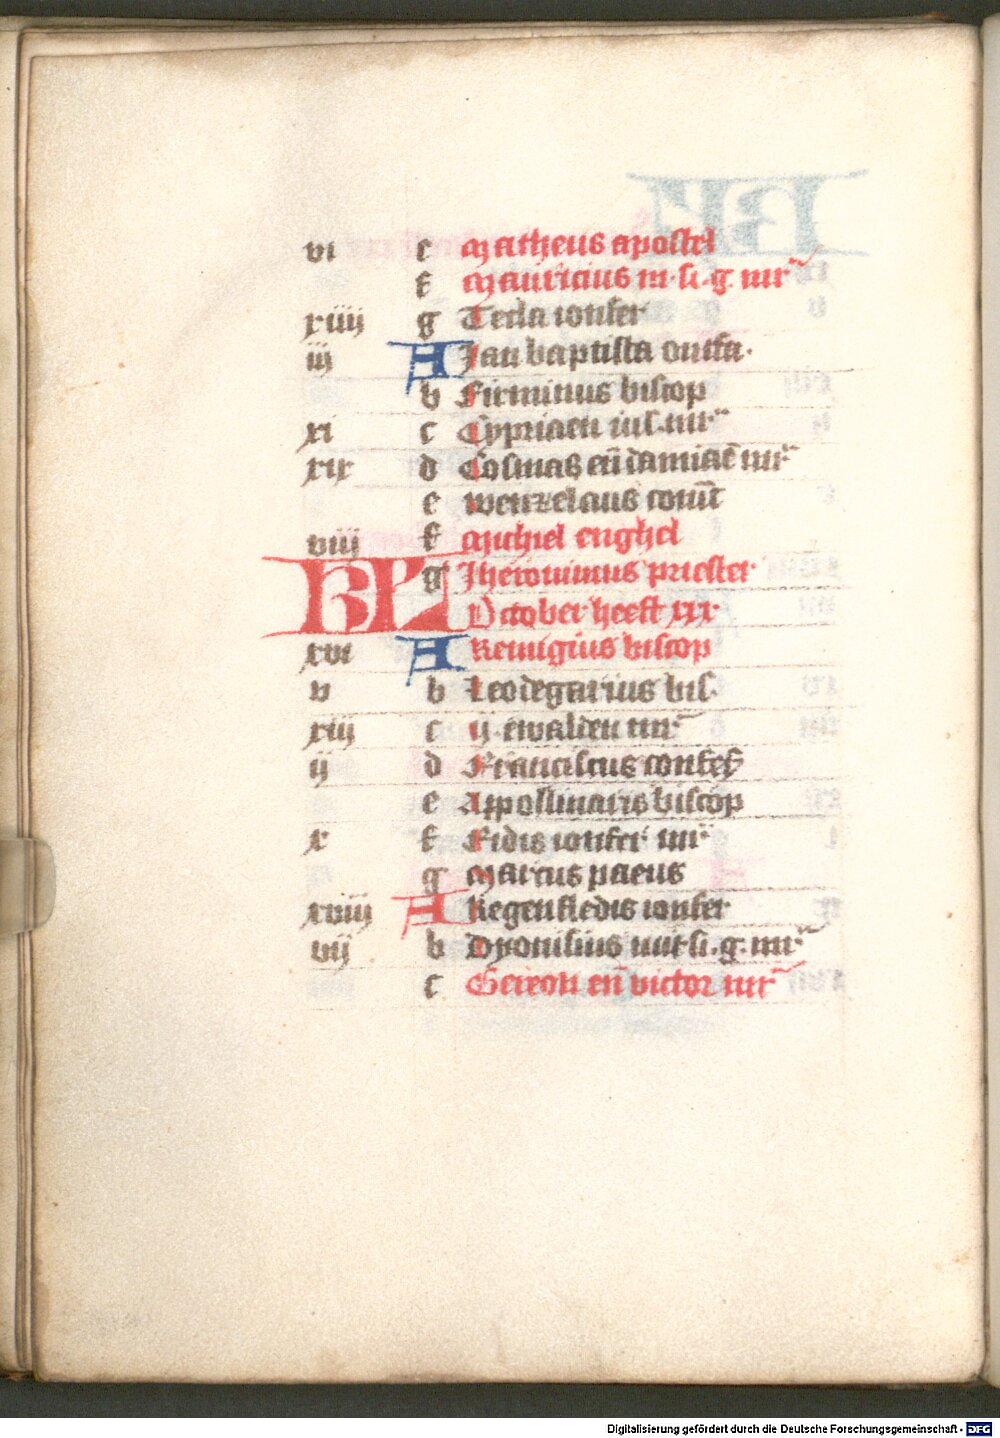 vi e Matheus apostel
f Mauricius m. si. g. mr
xiiii g Tecla ionfer
iii A Jan baptista ontfa.
b Firminus biscop
xi c Cypriaen ius. mr
xix d Cosmas eñ damiaē mr
e Wenzelaus conuē
viii f Michiel enghel
g Jheronimus priester
KL October heeft xxx
xvi A Remigius biscop
v b Leodegarius bis.
xiii c ij. ewalden mr
ii d Franciscus confes
e Appollinaris biscop
x f Fidis ionfer mr
g Marcus paeus
xviii A Regenfledis ionfer
vii b Dyonisius mr si. g. mr
c Gereon eñ victor mr
Digitalisierung gefördert durch die Deutsche Forschungsgemeinschaft - DFG